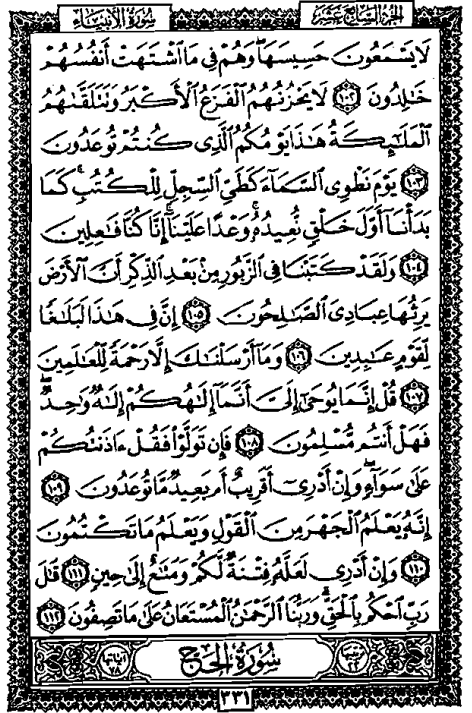 سُورَةُ الأَنبِيَاءِ
الجُزْءُ السَّابِعَ عَشَرَ
لَا يَسْمَعُونَ حَسِيسَهَا ۖ وَهُمْ فِي مَا ٱشْتَهَتْ أَنفُسُهُمْ
خَٰلِدُونَ ۝١٠٢ لَا يَحْزُنُهُمُ ٱلْفَزَعُ ٱلْأَكْبَرُ وَتَتَلَقَّىٰهُمُ
ٱلْمَلَٰٓئِكَةُ هَٰذَا يَوْمُكُمُ ٱلَّذِي كُنتُمْ تُوعَدُونَ
۝١٠٣ يَوْمَ نَطْوِي ٱلسَّمَآءَ كَطَيِّ ٱلسِّجِلِّ لِلْكُتُبِ ۚ كَمَا
بَدَأْنَآ أَوَّلَ خَلْقٍ نُّعِيدُهُۥ ۚ وَعْدًا عَلَيْنَآ ۚ إِنَّا كُنَّا فَٰعِلِينَ
۝١٠٤ وَلَقَدْ كَتَبْنَا فِي ٱلزَّبُورِ مِنۢ بَعْدِ ٱلذِّكْرِ أَنَّ ٱلْأَرْضَ
يَرِثُهَا عِبَادِيَ ٱلصَّٰلِحُونَ ۝١٠٥ إِنَّ فِي هَٰذَا لَبَلَٰغًا
لِّقَوْمٍ عَٰبِدِينَ ۝١٠٦ وَمَآ أَرْسَلْنَٰكَ إِلَّا رَحْمَةً لِّلْعَٰلَمِينَ
۝١٠٧ قُلْ إِنَّمَا يُوحَىٰٓ إِلَيَّ أَنَّمَآ إِلَٰهُكُمْ إِلَٰهٌ وَٰحِدٌ ۖ
فَهَلْ أَنتُم مُّسْلِمُونَ ۝١٠٨ فَإِن تَوَلَّوْا۟ فَقُلْ ءَاذَنتُكُمْ
عَلَىٰ سَوَآءٍ ۖ وَإِنْ أَدْرِيٓ أَقَرِيبٌ أَم بَعِيدٌ مَّا تُوعَدُونَ ۝١٠٩
إِنَّهُۥ يَعْلَمُ ٱلْجَهْرَ مِنَ ٱلْقَوْلِ وَيَعْلَمُ مَا تَكْتُمُونَ
۝١١٠ وَإِنْ أَدْرِي لَعَلَّهُۥ فِتْنَةٌ لَّكُمْ وَمَتَٰعٌ إِلَىٰ حِينٍ ۝١١١ قَٰلَ
رَبِّ ٱحْكُم بِٱلْحَقِّ ۗ وَرَبُّنَا ٱلرَّحْمَٰنُ ٱلْمُسْتَعَانُ عَلَىٰ مَا تَصِفُونَ ۝١١٢
ترتيبها ٢٢ سُورَةُ الحَجِّ آياتها ٧٨
٣٣١